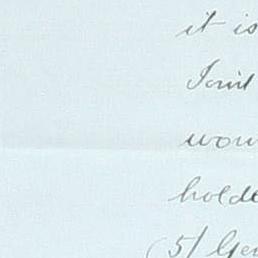 it is
Joint
woul
holde
(5/ Gen